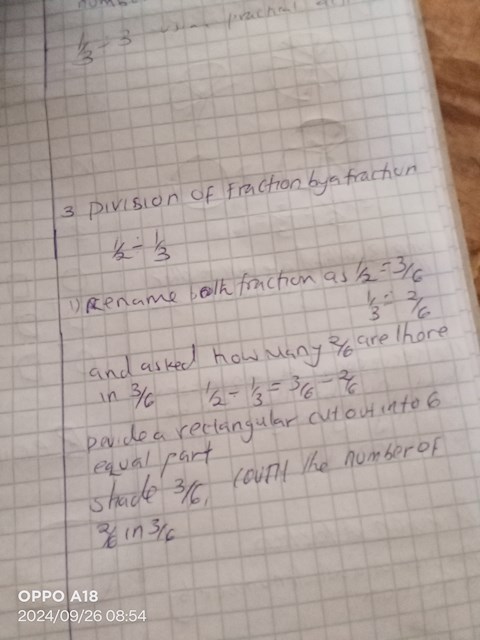 1/3 ÷ 3
3 Division of Fraction by a fraction
1/2 ÷ 1/3
1) Rename both fraction as 1/2 = 3/6
1/3 = 2/6
and asked how many 2/6 are there
in 3/6 1/2 ÷ 1/3 = 3/6 ÷ 2/6
Devide a rectangular cut out into 6
equal part
shade 3/6, count the number of
2/6 in 3/6
OPPO A18
2024/09/26 08:54